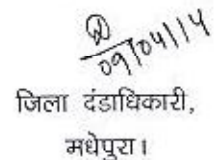 09/04/14
जिला दंडाधिकारी,
मधेपुरा।